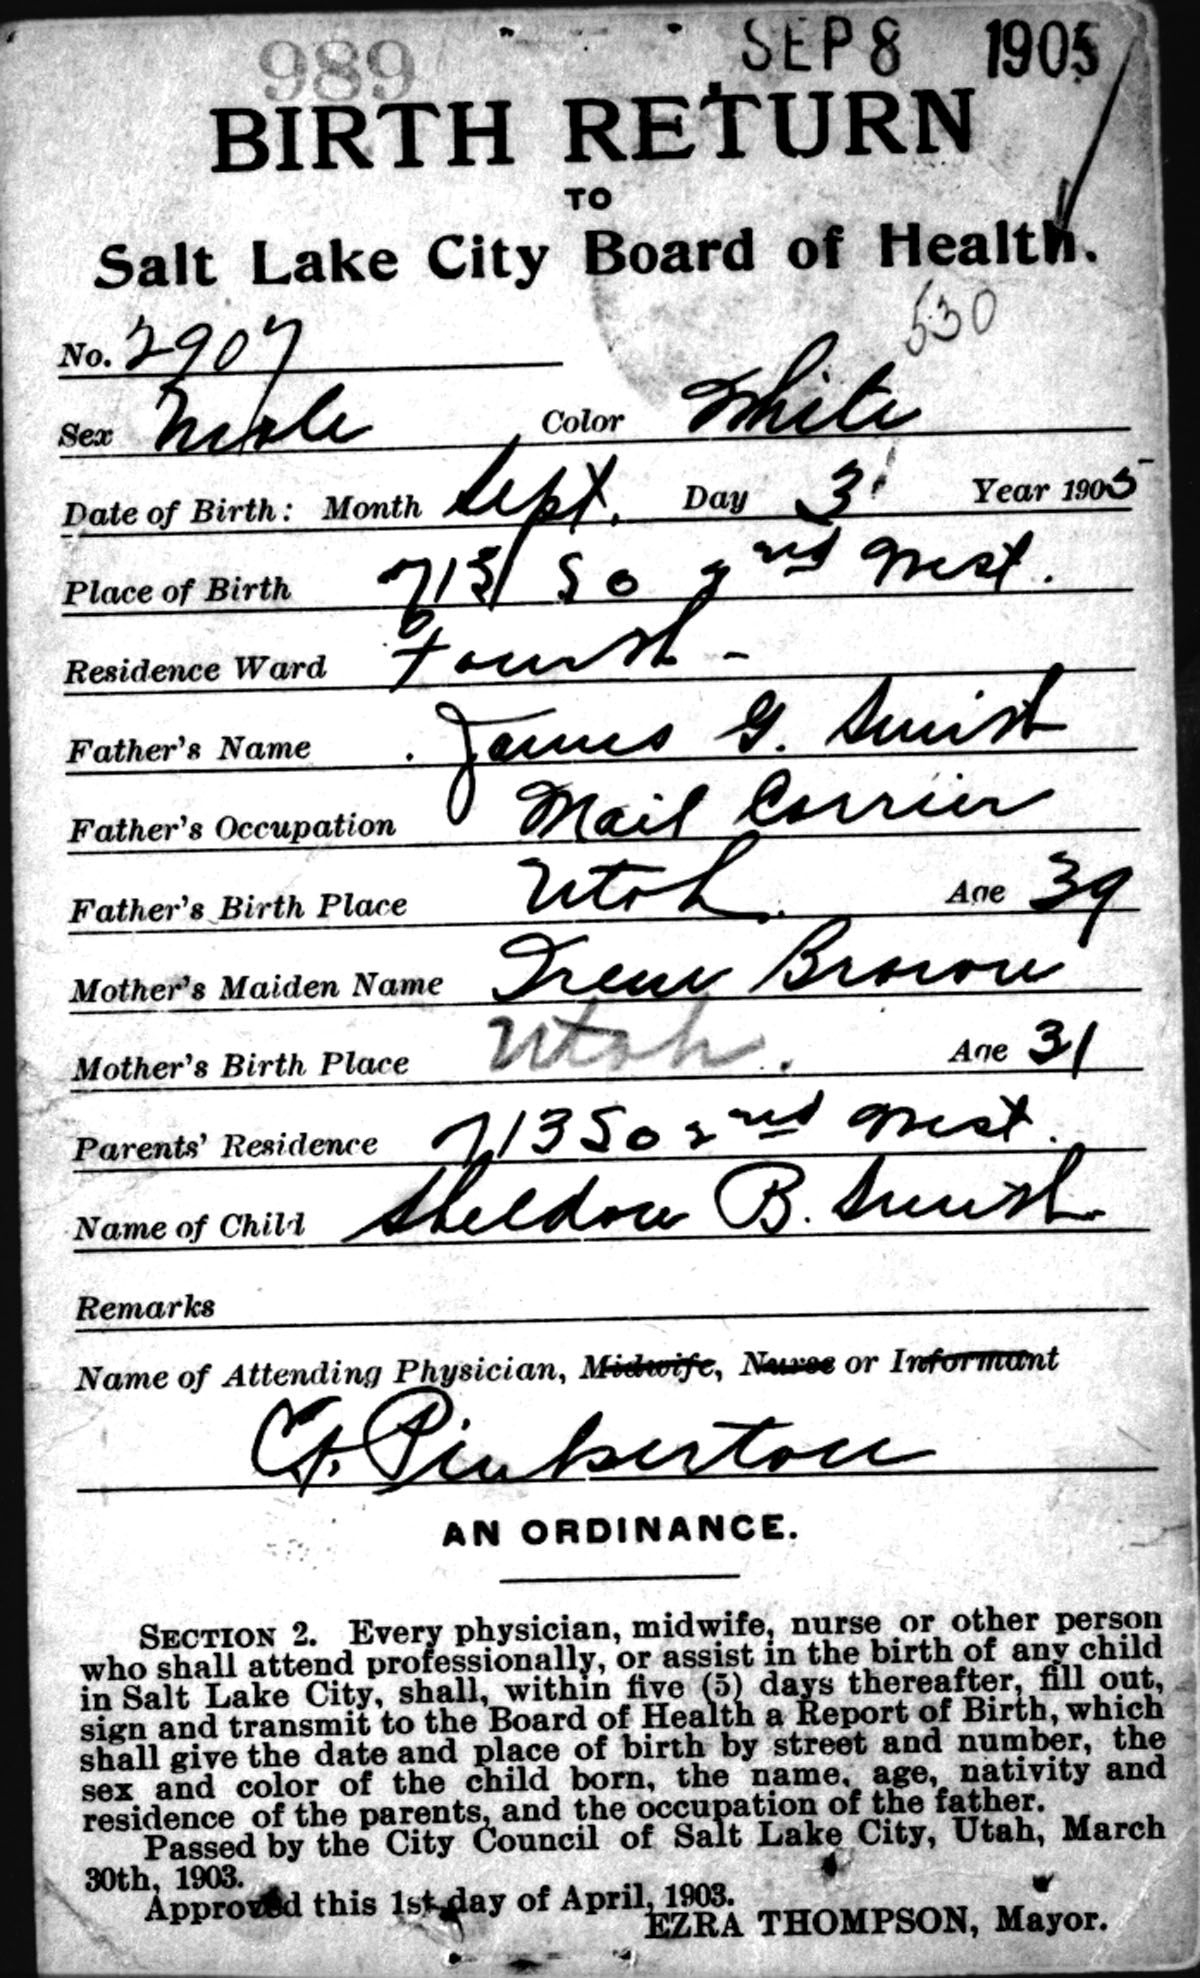 989 SEP 8 1905
BIRTH RETURN
TO
Salt Lake City Board of Health.
530
No. 2907
Sex Male Color White
Date of Birth: Month Sept. Day 3 Year 1905
Place of Birth 713 So 2nd West.
Residence Ward Fourth -
Father's Name James G. Smith
Father's Occupation Mail Carrier
Father's Birth Place Utah. Age 39
Mother's Maiden Name Irene Brown
Mother's Birth Place Utah. Age 31
Parents' Residence 713 So 2nd West.
Name of Child Sheldon B. Smith
Remarks
Name of Attending Physician, Midwife, Nurse or Informant
Pinkerton
AN ORDINANCE.
SECTION 2. Every physician, midwife, nurse or other person
who shall attend professionally, or assist in the birth of any child
in Salt Lake City, shall, within five (5) days thereafter, fill out,
sign and transmit to the Board of Health a Report of Birth, which
shall give the date and place of birth by street and number, the
sex and color of the child born, the name, age, nativity and
residence of the parents, and the occupation of the father.
Passed by the City Council of Salt Lake City, Utah, March
30th, 1903.
Approved this 1st day of April, 1903.
EZRA THOMPSON, Mayor.